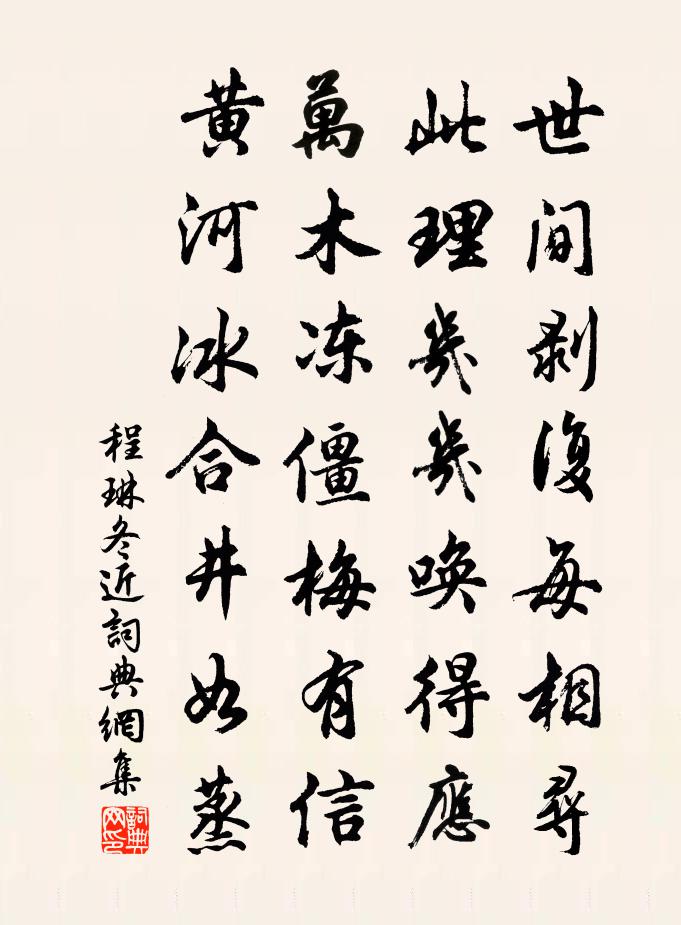 世間剥復每相尋
此理幾幾喚得應
萬木冻僵梅有信
黄河冰合井如蒸
程琳冬近詞典網集
詞典網印